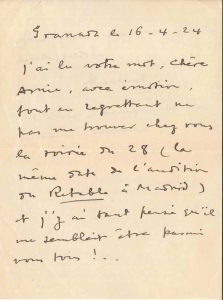 Granada le 16-4-24
J'ai lu votre mot, chère
Amie, avec émotion,
tout en regrettant ne
pas me trouver chez vous
la soirée du 28 (la
même date de l'audition
du Retable à Madrid)
et j'y ai tant pensé qu'il
me semblait être parmi
vous tous!..